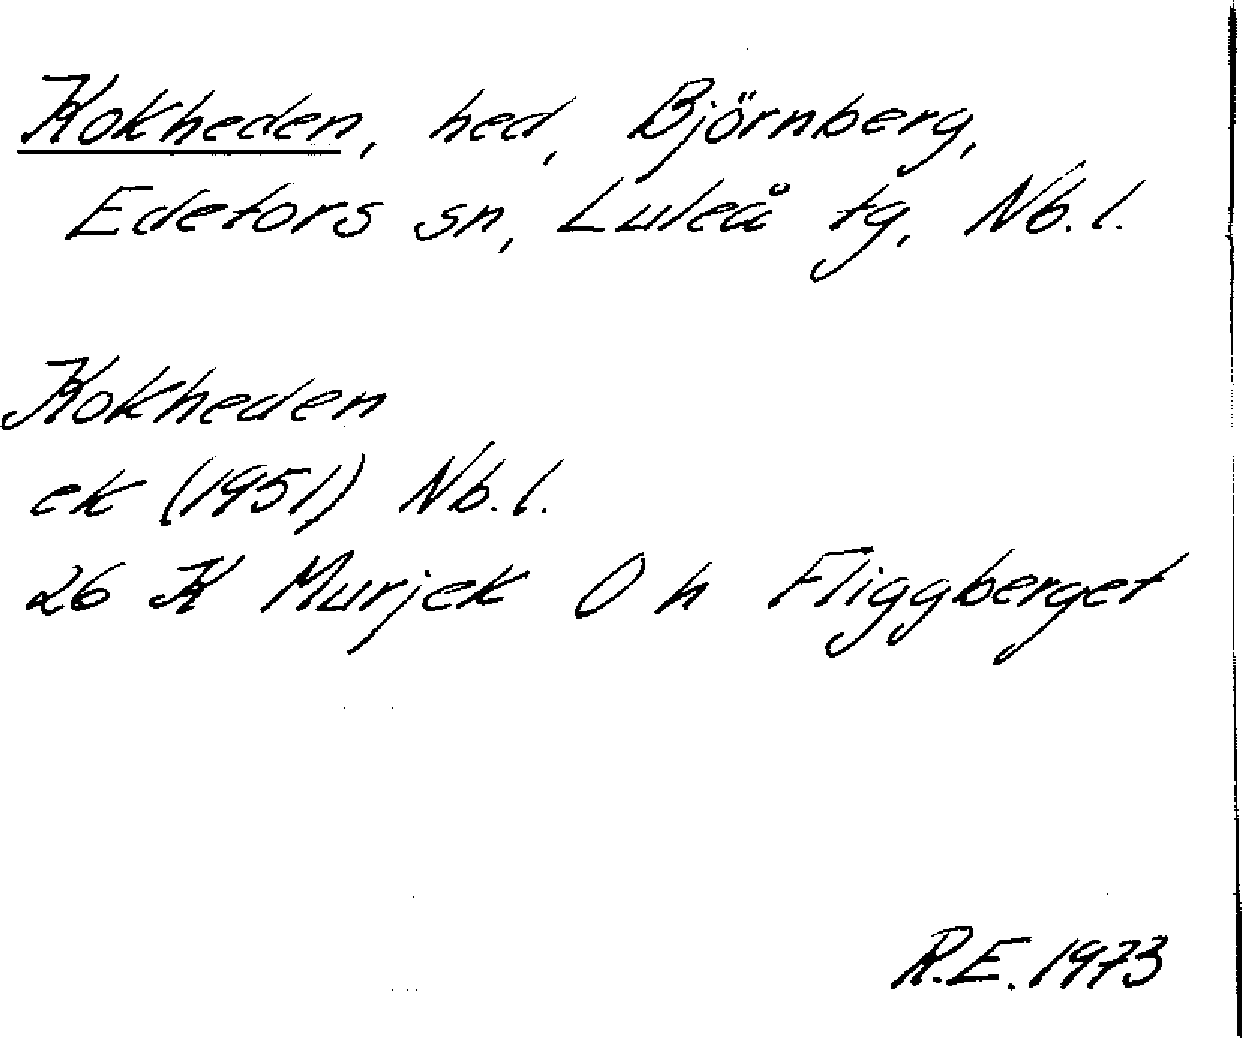 Kokheden, hed, Björnberg,
Edefors sn, Luleå tg, Nb.l.
Kokheden
ek (1951) Nb.l.
26 K Murjek O h Fliggberget
R.E. 1973